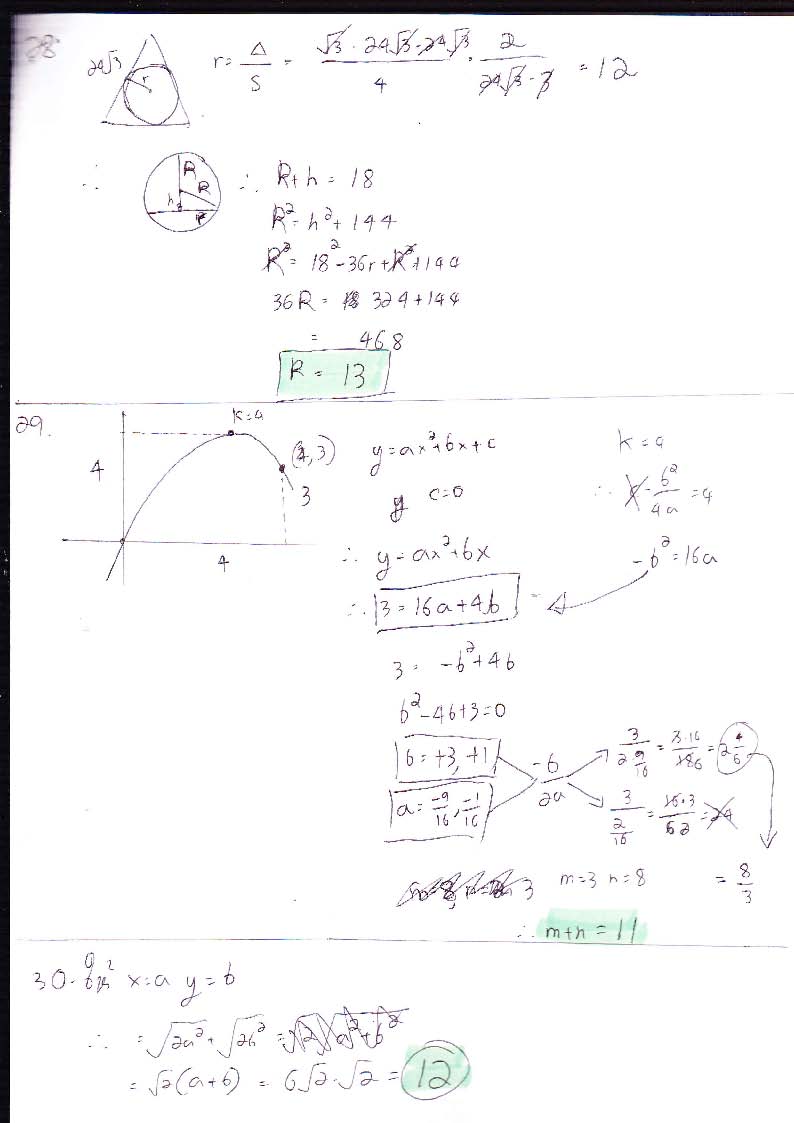 28
24√3
r
r = Δ/S = (√3 · 24√3 · 24√3)/4 · 2/(24√3 · 3) = 12
∴
R
R
h
r
∴ R+h = 18
R² = h² + 144
R² = 18² - 36r + R² + 144
36R = 324 + 144
= 468
R = 13
29.
k=4
4
(4, 3)
3
4
y = ax² + bx + c
y c=0
∴ y = ax² + bx
∴ 3 = 16a + 4b
k = 4
∴ -b²/4a = 4
-b² = 16a
3 = -b² + 4b
b² - 4b + 3 = 0
b = +3, +1
a = -9/16, -1/16
-b/2a
3/(2 9/16) = 3·16/18 6 = 2 4/6
3/(2/16) = 16·3/2 = 24
= 8/3
m=3 n=8
∴ m+n = 11
30. x=a y=b
∴ = √2a² + √2b² = √2 √a²+b²
= √2(a+b) = 6√2·√2 = 12